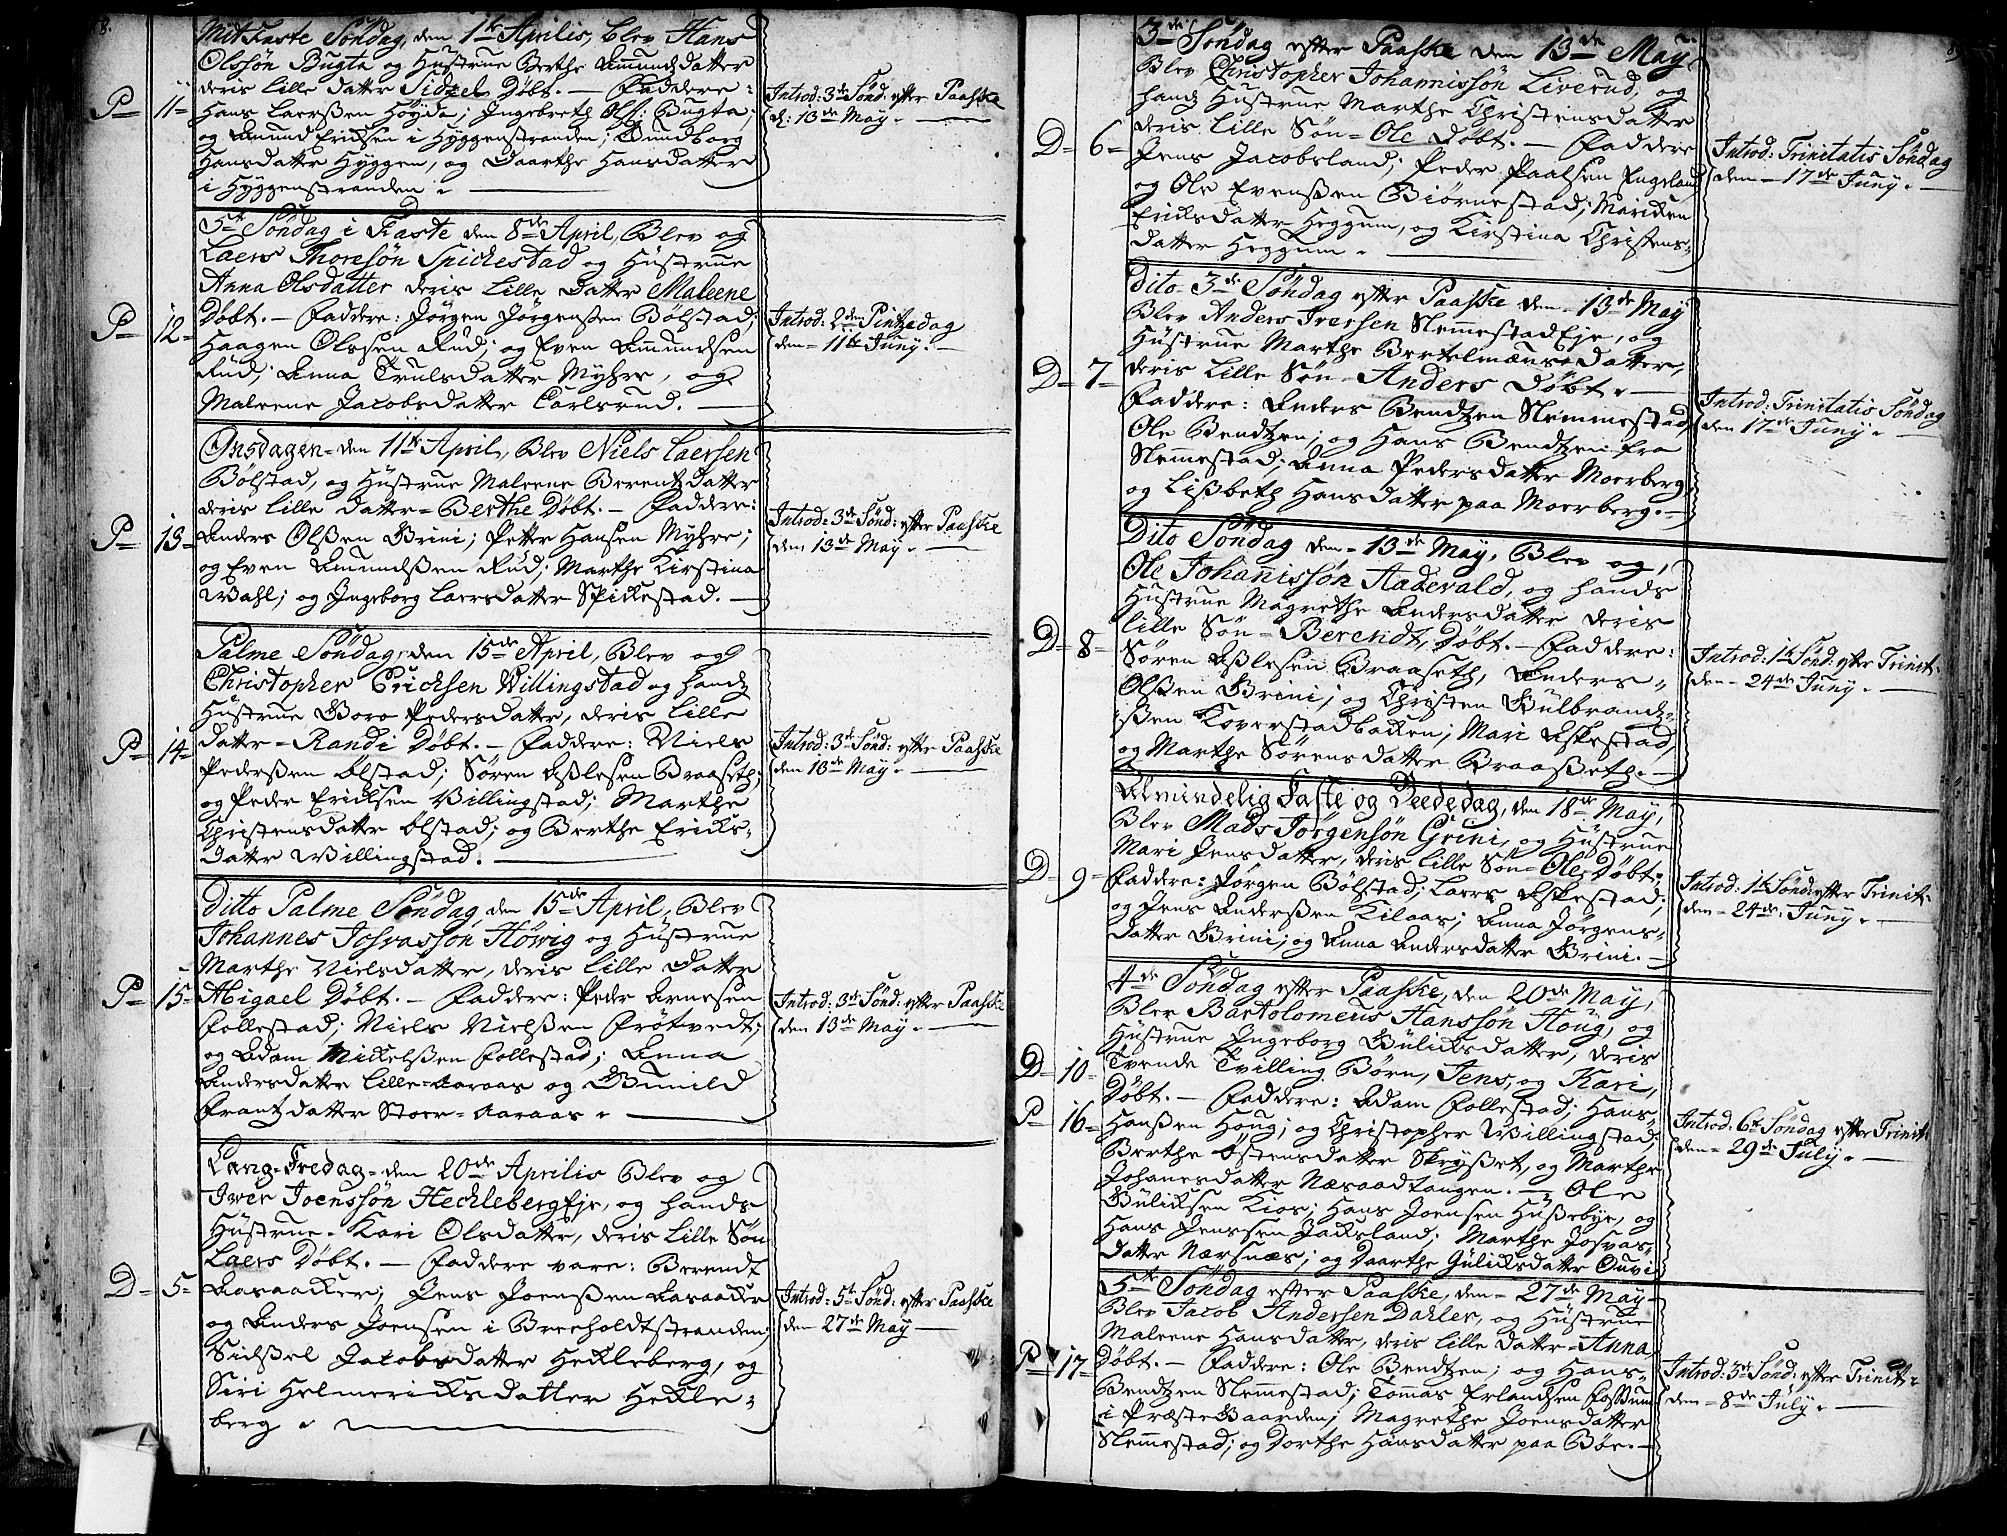 8.
Mitfaste Søndag, den 1te Aprilis, blev Hans
Olssøn Bugta og Hustrue Berthe Amundsdatter
deris lille datter Sidzel Døbt. — Faddere:
P 11 Hans Larsen Høyda; Ingebreth Ols: Bugta;
og Amund Ericksen i Hyggenstranden; Gundborg
Hansdatter Hyggen, og Daarthe Hansdatter
i Hyggenstranden.
Introd: 3de Sønd: efter Paaske
d: 13de May.
5te Søndag i Faste den 8de April, Blev og
Laers Thoresøn Spickestad og Hustrue
Anna Olsdatter deris lille Datter Maleene
P 12 Døbt. — Faddere: Jørgen Jørgenssen Bølstad;
Haagen Olssen Rud; og Even Amundsen
Rud; Anna Trulsdatter Myhre, og
Maleene Jacobsdatter Carlsrud.
Introd: 2den Pintzedag
den 11te Juny.
Onsdagen den 11te April, Blev Niels Laersen
Bølstad, og Hustrue Maleene Berentzdatter
deris lille datter Berthe Døbt. — Faddere:
P 13 Anders Olssen Brini; Petter Hansen Myhre;
og Even Amundssen Rud; Marthe Kirstina
Wahl; og Ingeborg Laersdatter Spickestad.
Introd: 3de Sønd: efter Paaske
den 13de May.
Palme Søndag, den 15de April, Blev og
Christopher Ericksen Willingstad og hands
Hustrue Boro Pedersdatter, deris lille
P 14 datter Randi Døbt. — Faddere: Niels
Pederssen Ølstad; Søren Asslesen Braaseth;
og Peder Ericksen Willingstad; Marthe
Christensdatter Ølstad; og Berthe Ericks-
datter Willingstad.
Introd: 3de Sønd: efter Paaske
den 13de May.
Ditto Palme Søndag den 15de April, Blev
Johannes Josvassøn Høwig og Hustrue
Marthe Nielsdatter, deris lille Datter
P 15 Abigael Døbt. — Faddere: Peder Arnesen
Follestad; Niels Nielssen Frøtvedt;
og Adam Mickelssen Follestad; Anna
Andersdatter Lille-Aaraas og Gunild
Frantzdatter Stoer-Aaraas.
Introd: 3de Sønd: efter Paaske
den 13de May.
Lang-Fredag den 20de Aprilis Blev og
Iwer Joenssøn Heckleberg Eje, og hands
Hustrue Kari Olsdatter, deris lille Søn
Laers Døbt. — Faddere vare: Berendt
D 5 Aasaacker; Jens Joenssen Aasaacker
og Anders Joensen i Breeholdtstranden;
Sidssel Jacobsdatter Heckleberg, og
Siri Helmericksdatter Heckle-
berg.
Introd: 5te Sønd: efter Paaske
den 27de May
3de Søndag efter Paaske den 13de May
Blev Christopher Johannissøn Liverud, og
hands Hustrue Marthe Christensdatter
deris lille Søn Ole Døbt. — Faddere
D 6 Jens Jacobsland; Peder Paalsen Engeland
og Ole Evenssen Biørnestad; Maricken
Ericksdatter Heggum, og Kirstina Christens-
datter Heggum.
Introd: Trinitatis Søndag
den 17de Juny.
Dito 3de Søndag efter Paaske den 13de May
Blev Anders Iversen Slemmestad Eje, og
Hustrue Marthe Bertelmænsdatter,
D 7 deris lille Søn Anders Døbt.
Faddere: Anders Bendtzen Slemmestad,
Ole Bendtzen; og Hans Bendtzen fra
Slemmestad; Anna Pedersdatter Moerberg,
og Lissbeth Hansdatter paa Moerberg.
Introd: Trinitatis Søndag
den 17de Juny.
Dito Søndag den 13de May, Blev og,
Ole Johanissøn Aadevald, og hands
Hustrue Magrethe Andersdatter deris
D 8 lille Søn Berendt, Døbt. — Faddere:
Søren Asslesen Braaseth, Anders
Olssen Brini; og Christen Gulbrandz-
ssen Koverstadbacken; Mari Askestad,
og Marthe Sørensdatter Braasseth.
Introd: 1te Sønd: efter Trinit:
den 24de Juny.
Almindelig Faste og Beededag, den 18de May,
Blev Mads Jørgensøn Grini, og Hustrue
Mari Jensdatter, deris lille Søn Ole Døbt.
D 9 Faddere: Jørgen Bølstad; Laers Askestad;
og Jens Anderssen Kilaas; Anna Jørgens-
datter Brini; og Anna Andersdatter Brini.
Introd: 1te Sønd: efter Trinit:
den 24de Juny.
4de Søndag efter Paaske, den 20de May,
Blev Bartolomeus Hanssøn Houg, og
Hustrue Ingeborg Gulicksdatter, deris
D 10 Tvende Tvilling Børn, Jens, og Kari,
Døbt. — Faddere: Adam Follestad; Hans
P 16 Hanssen Houg; og Christopher Willingstad;
Berthe Østensdatter Skrysset, og Marthe
Johanesdatter Næsaadtangen. — Ole
Gulicksen Kios; Hans Joensen Hussebye, og
Hans Jenssen Jacksland; Marthe Josvas-
datter Nærsnæs; og Daarthe Gulicksdatter Ouvi
Introd: 6te Søndag efter Trinit:
den 29de July.
5te Søndag efter Paaske, den 27de May
Blev Jacob Andersen Dahler, og Hustrue
Maleene Hansdatter, deris lille datter Anna
P 17 Døbt. — Faddere: Ole Bendtzen; og Hans
Bendtzen Slemmestad; Tommas Erlandsen Fossum
i PræsteGaarden; Magrethe Joensdatter
Slemmestad; og Dorthe Hansdatter paa Bøe.
Introd: 3de Sønd: efter Trinit:
den 8de July.